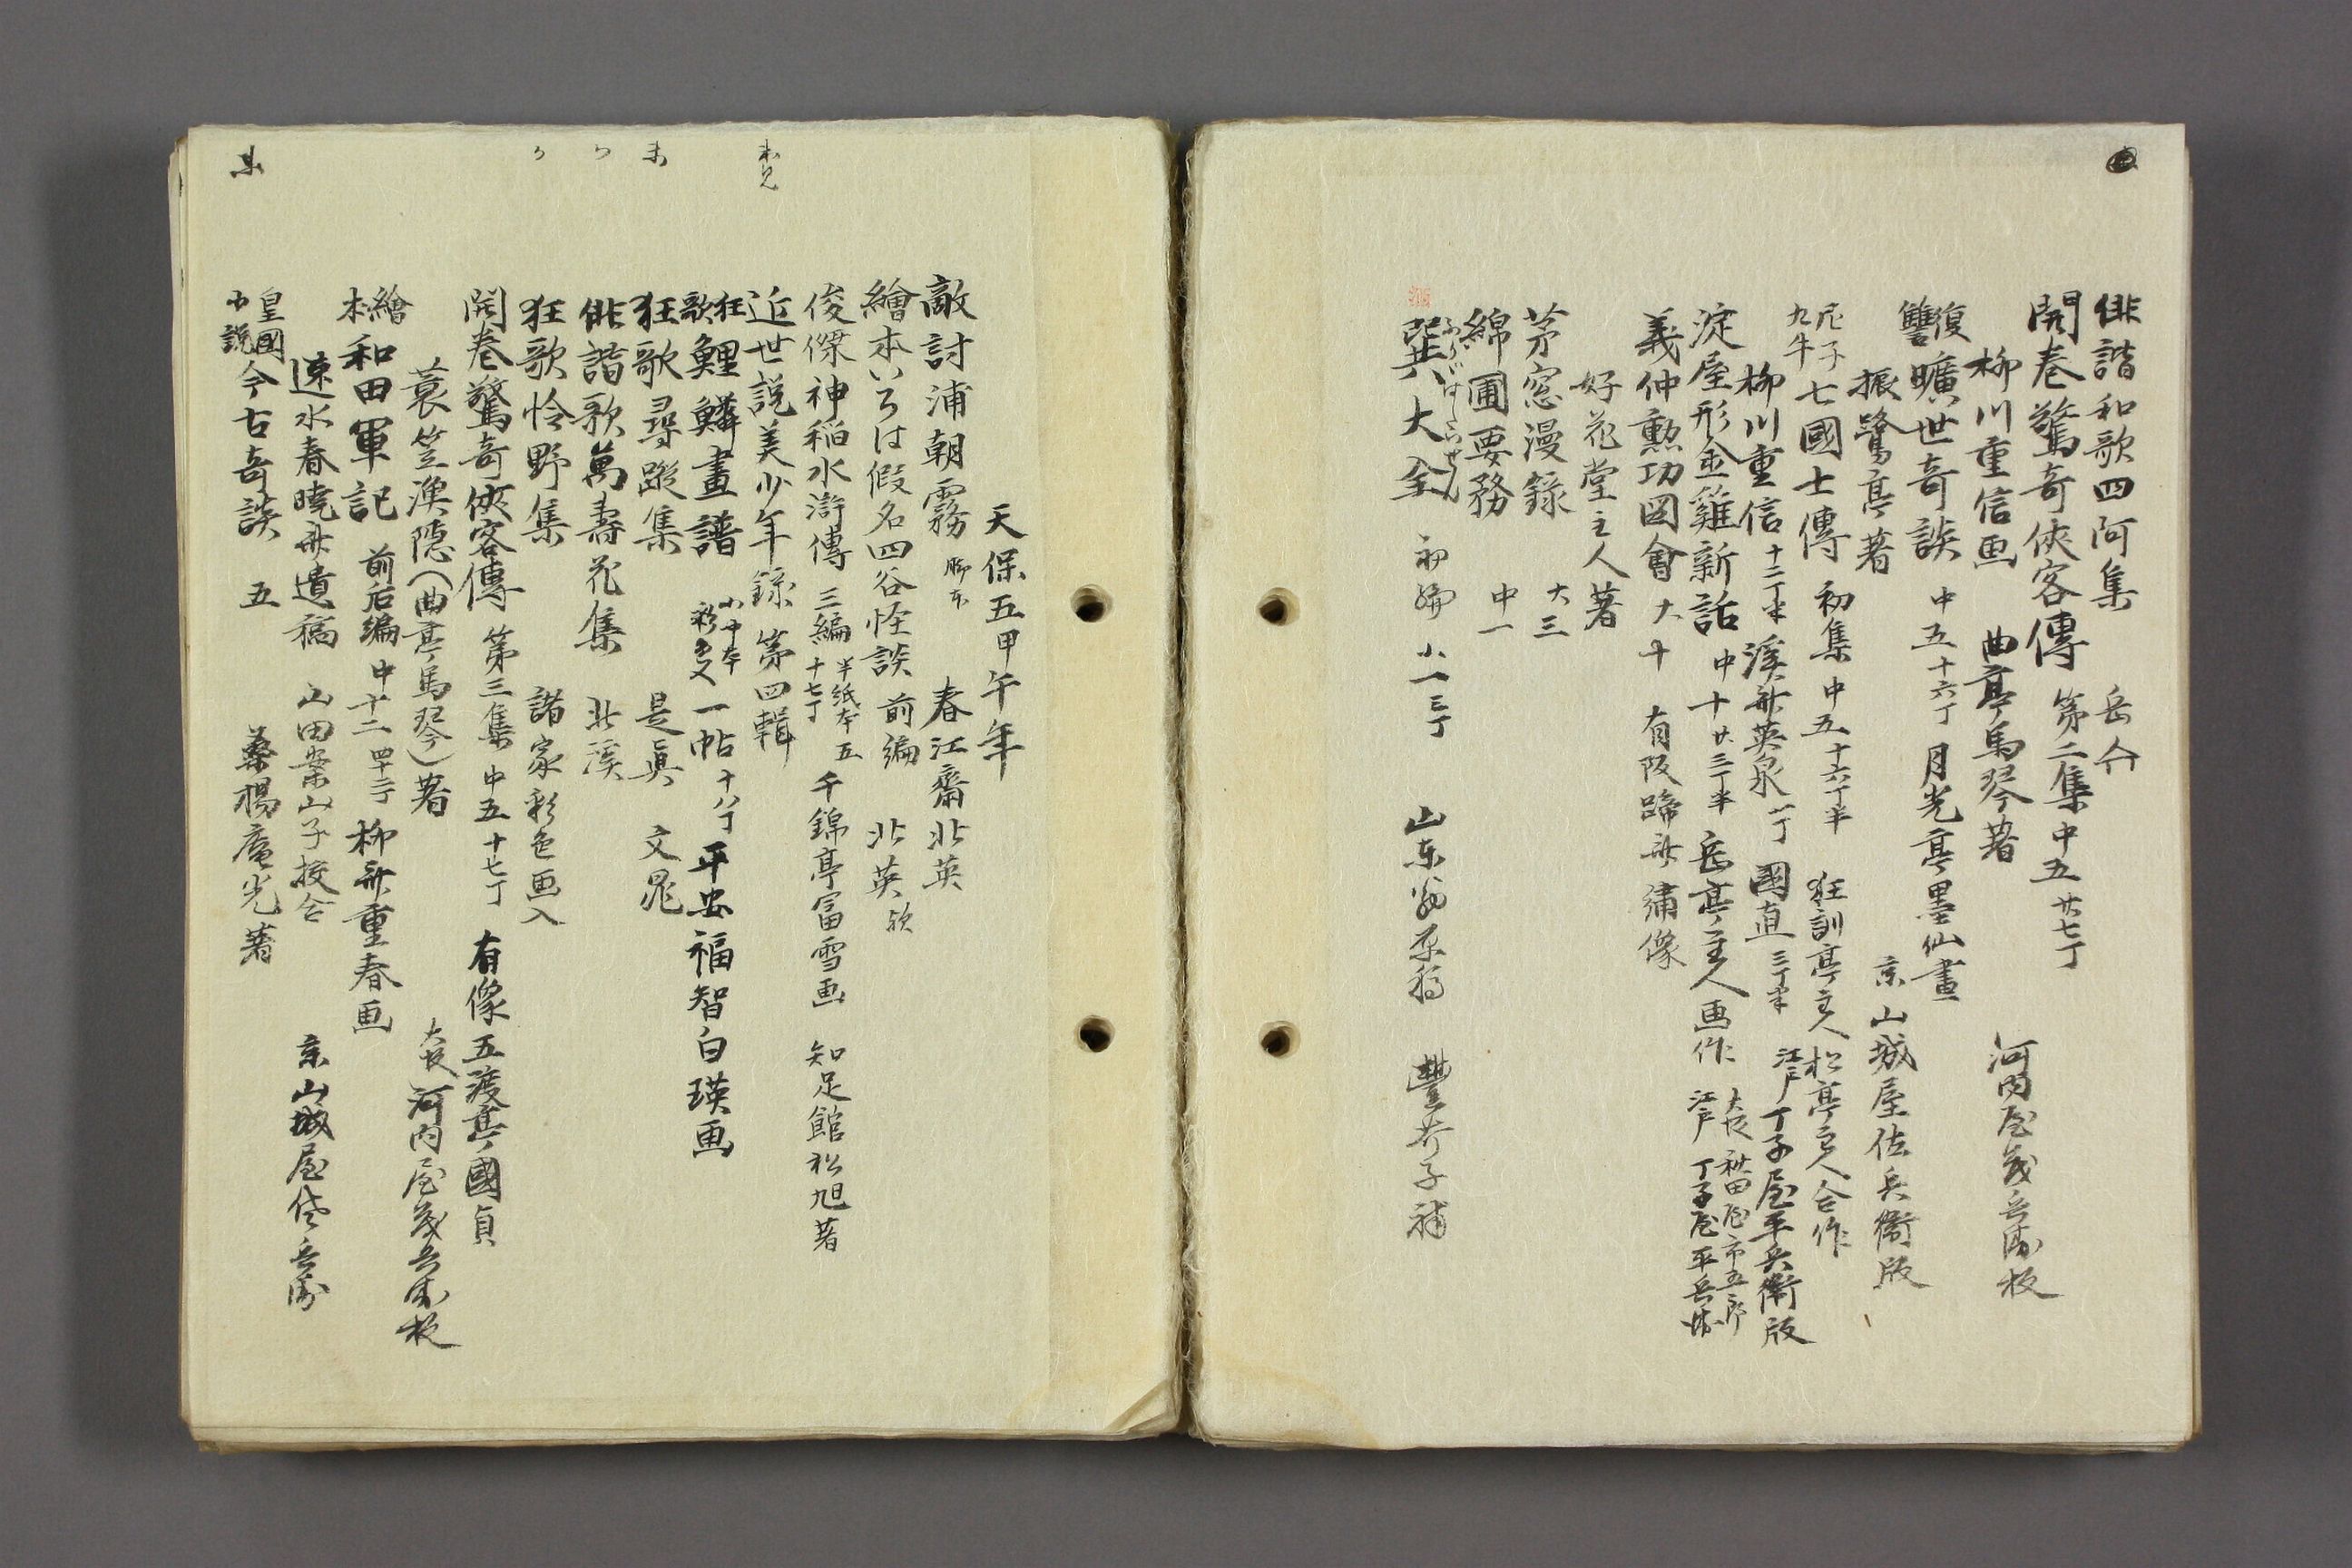 俳諧和歌四阿集　岳亭
開巻驚奇俠客傳　第二集　中五　廿七丁
柳川重信画　曲亭馬琴著　河内屋茂兵衛板
復讐　曠世奇談　中五　十六丁　月光亭墨仙畫
振鷺亭著　京　山城屋佐兵衛版
尼子九牛　七國士傳　初集　中五　十六丁半　狂訓亭主人松亭主人合作
柳川重信　十二丁半　溪斎英泉　一丁　國直　三丁半　江戸　丁子屋平兵衛版
淀屋形金雞新話　中十　廿三丁半　岳亭主人画作　大阪　秋田屋市五郎　江戸　丁子屋平兵衛
義仲勲功図會　大十　有阪蹄斎繍像
好花堂主人著
茅窓漫録　大三
綿圃要務　中一
巽大全　初編　小一　三丁　山东翁原稿　豐芥子補
天保五甲午年
敵討浦朝霧　脚本　春江齋北英
繪本いろは假名四谷怪談　前編　北英　欤
俊傑神稲水滸傳　三編　半紙本五　十七丁　千錦亭富雪画　知足館松旭著
未見　近世説美少年録　第四輯
狂歌　鯉鱗畫譜　小中本　彩色　一帖　十八丁　平安　福智白瑛画
未　狂歌尋蹤集　是眞　文晁
〃　俳諧歌萬壽花集　北溪
〃　狂歌怜野集　諸家彩色画入
開巻驚奇俠客傳　第三集　中五　十七丁　有像五渡亭國貞
蓑笠漁隠（曲亭馬琴）著　大阪　河内屋茂兵衛板
繪本　和田軍記　前后編　中十二　四十二丁　柳斎重春画
速水春曉斎遺稿　山田案山子挍合　京　山城屋佐兵衛
未　皇國小説　今古奇談　五　蒃楊庵光著